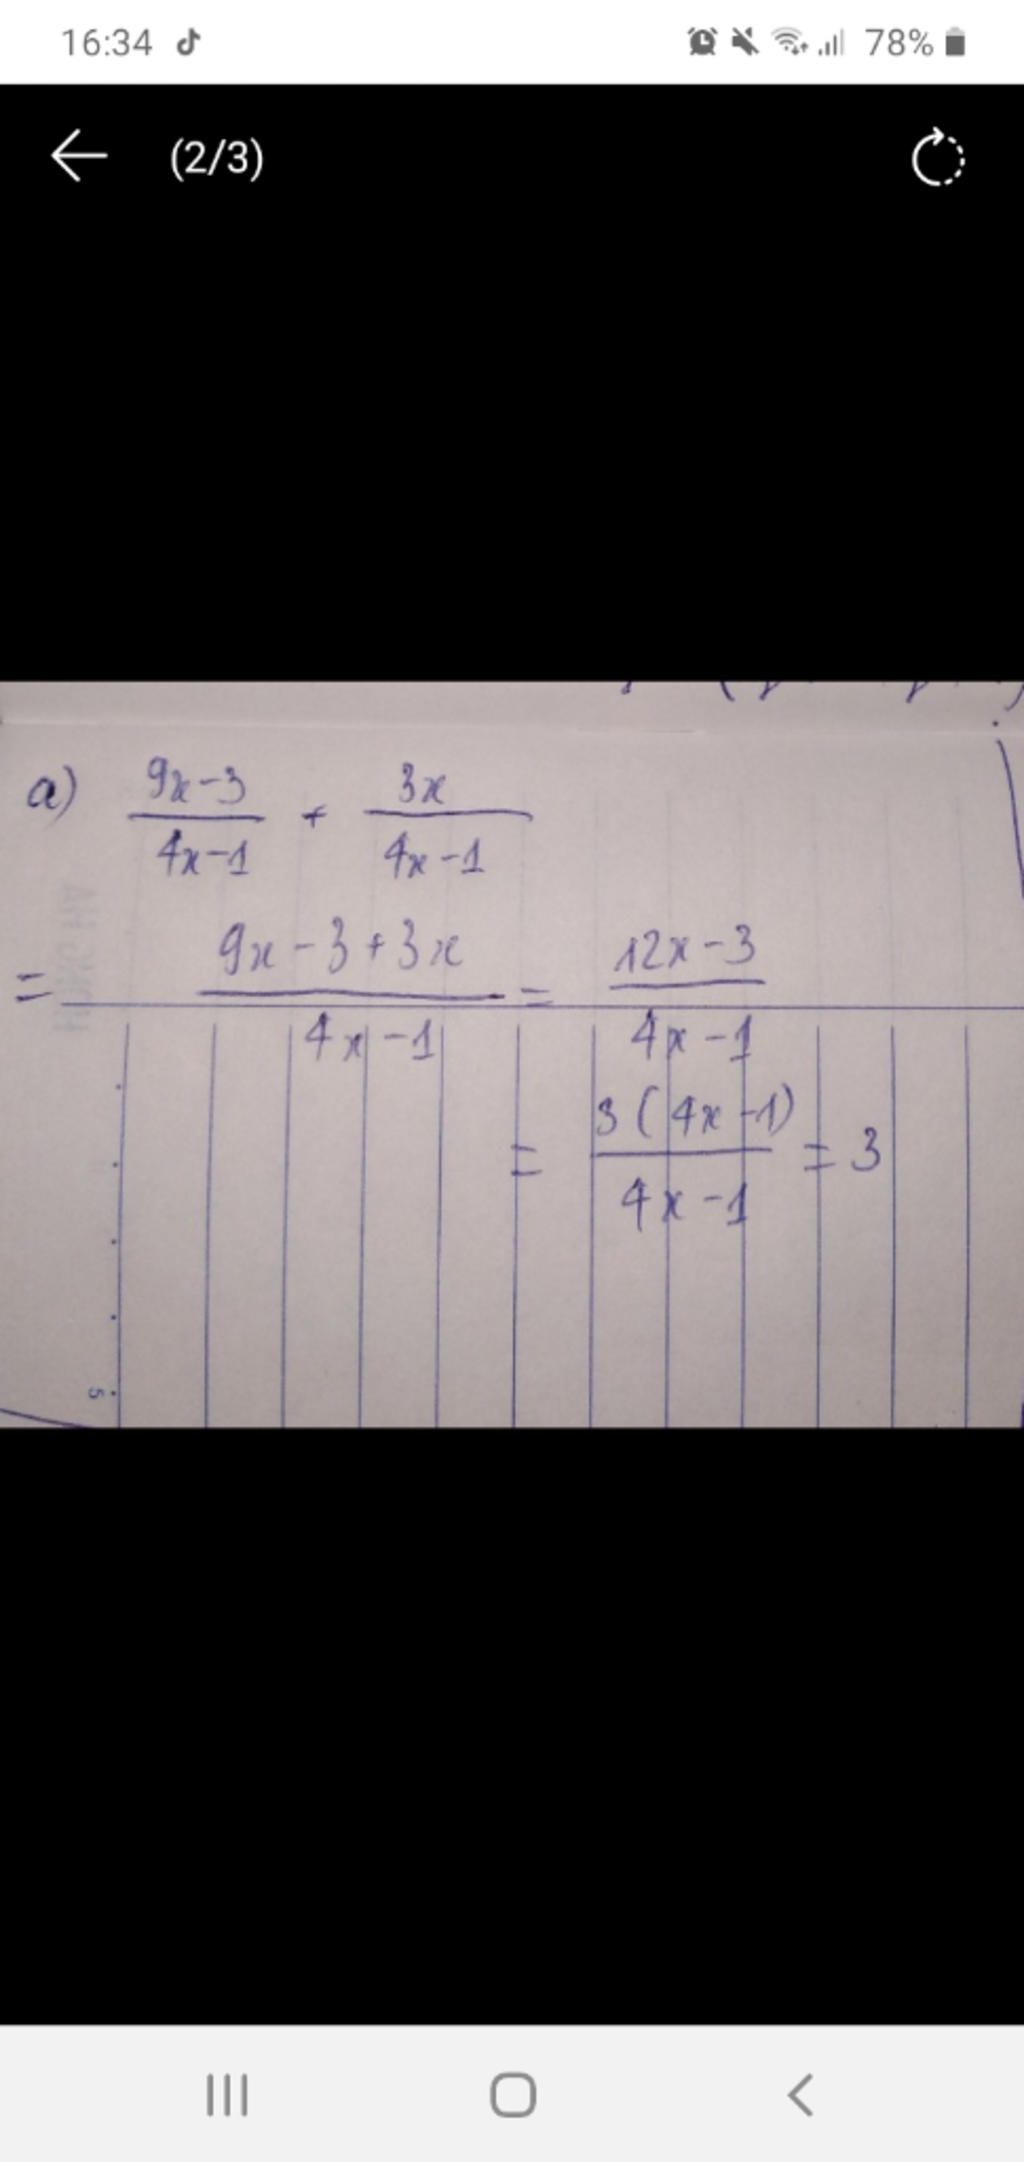 16:34 78%
(2/3)
a) 9x-3 / 4x-1 + 3x / 4x-1
= 9x-3+3x / 4x-1 = 12x-3 / 4x-1
= 3(4x-1) / 4x-1 = 3
5